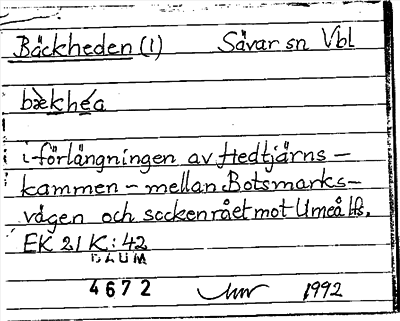 Bäckheden (1) Sävar sn Vbl
bækhéa
i förlängningen av Hedtjärns-
kammen - mellan Botsmarks-
vägen och sockenrået mot Umeå lfs.
EK 21 K: 42
DAUM
4672 1992